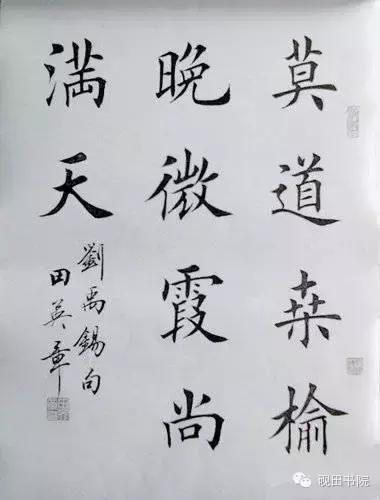 莫道桒榆
晚微霞尚
满天
劉禹錫句
田英章
砚田书院